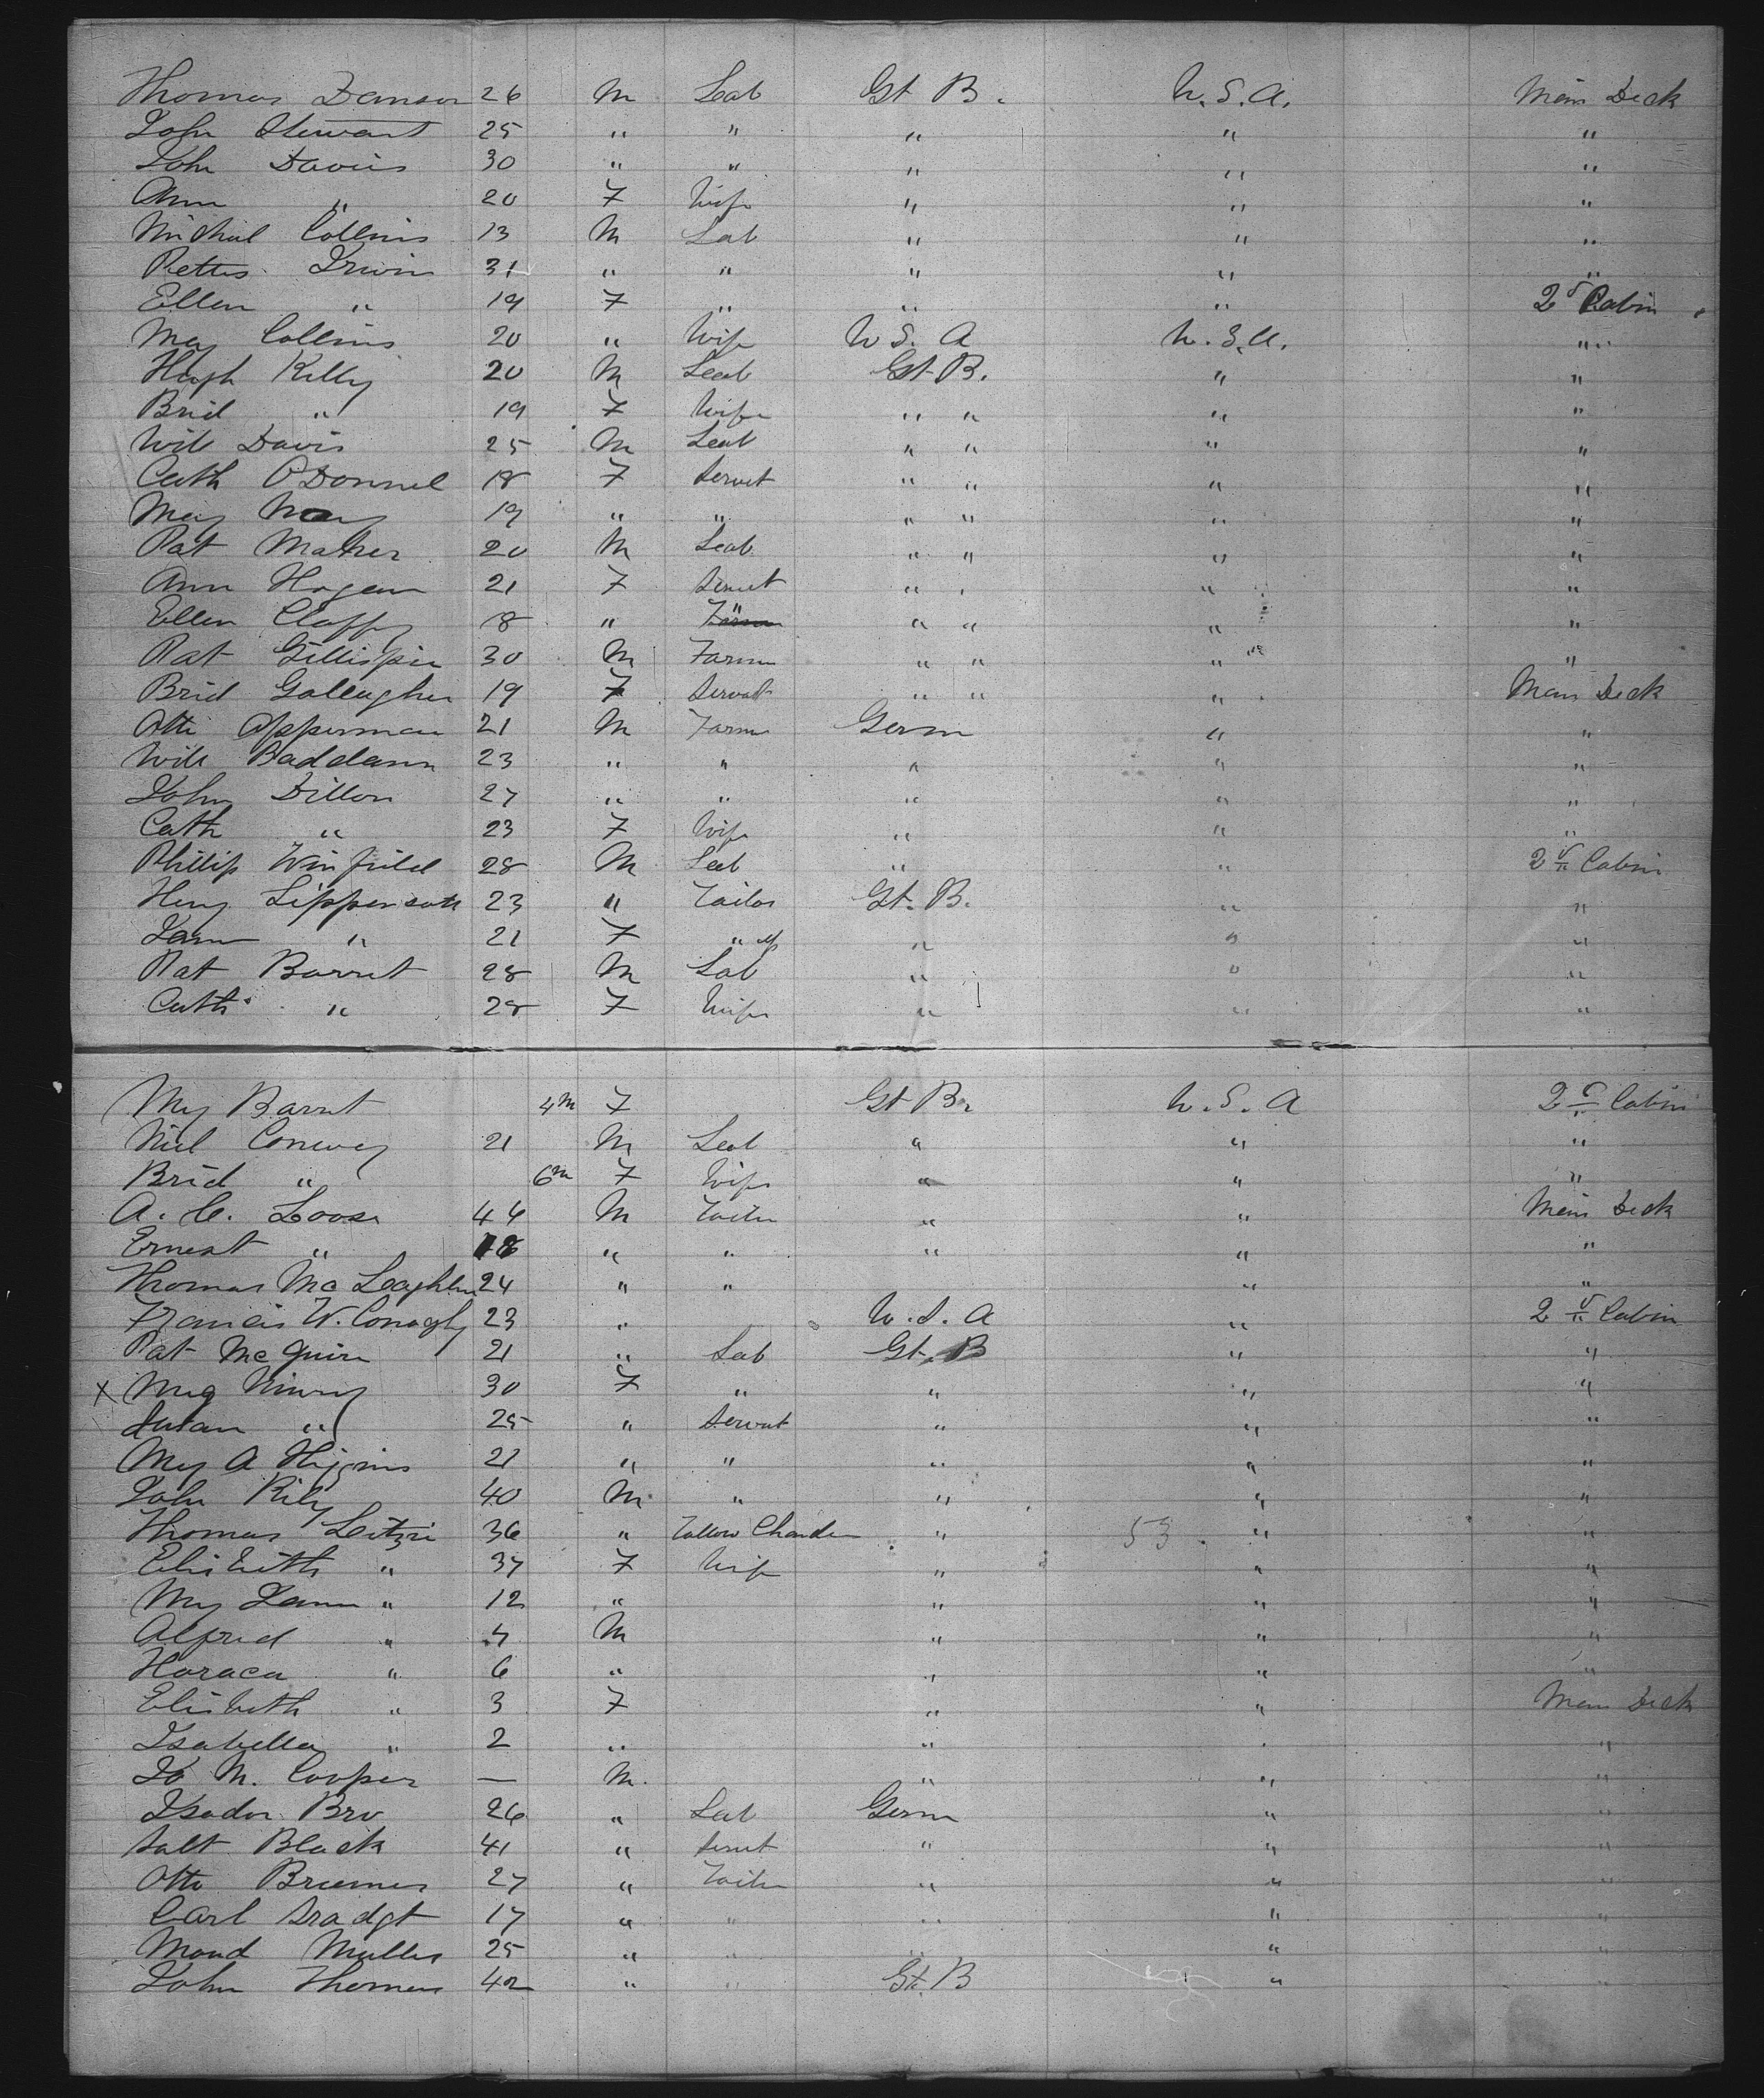 Thomas Danson 26 M Lab Gt B. U.S.A. Main Deck
John Stewart 25 " " " " "
John Davis 30 " " " " "
Ann " 20 F Wife " " "
Michael Collins 13 M Lab " " "
Irwin 31 " " " " "
Ellen " 19 F " " " 2d Cabin
May Collins 20 " Wife U S. A U.S.A. "
Hugh Kelly 20 M Lab Gt B. " "
Brid " 19 F Wife " " " "
Will Davis 25 M Lab " " " "
Cath O'Donnel 18 F Servt " " " "
May 19 " " " " " "
Pat Maher 20 M Lab " " " "
Ann Hogan 21 F Servt " " "
Ellen Claffy 18 " " " " " "
Pat Gillispie 30 M Farm " " " "
Brid Gallagher 19 F Servat " " " Main Deck
Otti Opperman 21 M Farm Germ " "
Will Baddann 23 " " " " "
John Dillon 27 " " " " "
Cath " 23 F Wife " " "
Phillip Winfield 28 M Lab " " 2d Cabin
Heny Lippensott 23 " Tailor Gt. B. " "
Jane " 21 F " " " "
Pat Barret 28 M Lab " " "
Cath " 28 F Wife " " "
My Barret 4m F Gt B. U.S.A 2d Cabin
Niel Conway 21 M Lab " " "
Brid " 6m F Wife " " "
A. C. Loose 46 M Tailor " " Main Deck
Ernest " 18 " " " " "
Thomas Mc Laughlin 24 " " " "
Francis W. Conagly 23 " U.S.A " 2d Cabin
Pat McGuire 21 " Lab Gt. B " "
X Meg 30 F " " " "
Susan " 25 " Servt " " "
My A Higgins 21 " " " " "
John Rily 40 M " " " "
Thomas 36 " Tallow Chandler " 53 " "
Elisbeth " 37 F Wife " " "
My Jane " 12 " " " "
Alfred " 7 M " " "
Horace " 6 " " " "
Elisbeth " 3 F " " Main Deck
Isabella " 2 " " " "
Jo M. Cooper — M " " "
Isador Bro 26 " Lab Germ " "
Salt Black 41 " Servt " " "
Otto Bruemer 27 " Tailor " " "
Carl Sradgt 17 " " " " "
Moud Muller 25 " " " " "
John Thomas 42 " " Gt. B " "